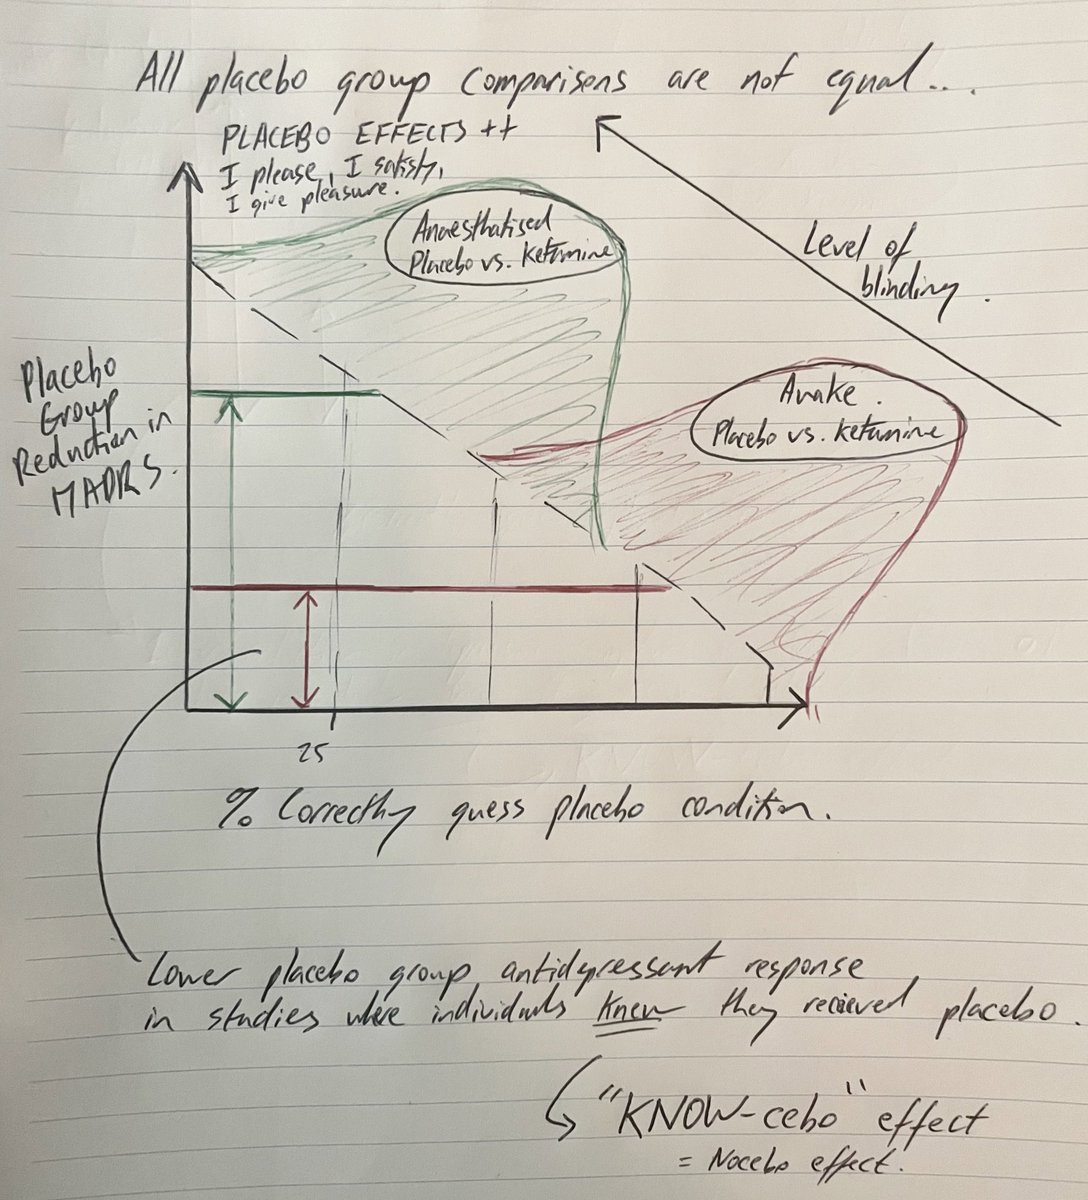 All placebo group comparisons are not equal...
PLACEBO EFFECTS ++
I please, I satisfy,
I give pleasure.
Anaesthatised
Placebo vs. Ketamine
Level of
blinding.
Placebo
Group
Reduction in
MADRS.
Awake.
Placebo vs. Ketamine
25
% Correctly guess placebo condition.
Lower placebo group antidepressant response
in studies where individuals knew they recieved placebo.
"KNOW-cebo" effect
= Nocebo effect.